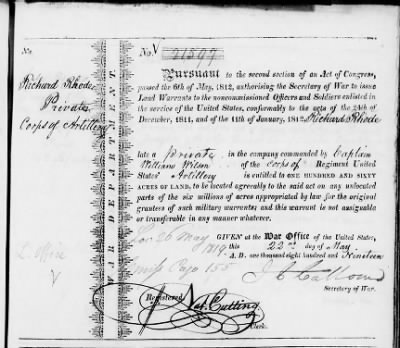 No.
No. 21599
Richard Rhode
Private
Corps of Artillery
WAR DEPARTMENT
Pursuant to the second section of an Act of Congress,
passed the 6th of May, 1812, authorising the Secretary of War to issue
Land Warrants to the noncommissioned Officers and Soldiers enlisted in
the service of the United States, conformably to the acts of the 24th of
December, 1811, and of the 11th of January, 1812, Richard Rhode
late a Private in the company commanded by Captain
William Wilson of the Corps of Regiment United
States' Artillery is entitled to ONE HUNDRED AND SIXTY
ACRES OF LAND, to be located agreeably to the said act on any unlocated
parts of the six millions of acres appropriated by law for the original
grantees of such military warrants; and this warrant is not assignable
or transferable in any manner whatever.
26 May
1819
GIVEN at the War Office of the United States,
this 22nd day of May
A. D. one thousand eight hundred and Nineteen
155
J C Calhoun
Secretary of War.
Registered
Nat. Cutting
Clerk.